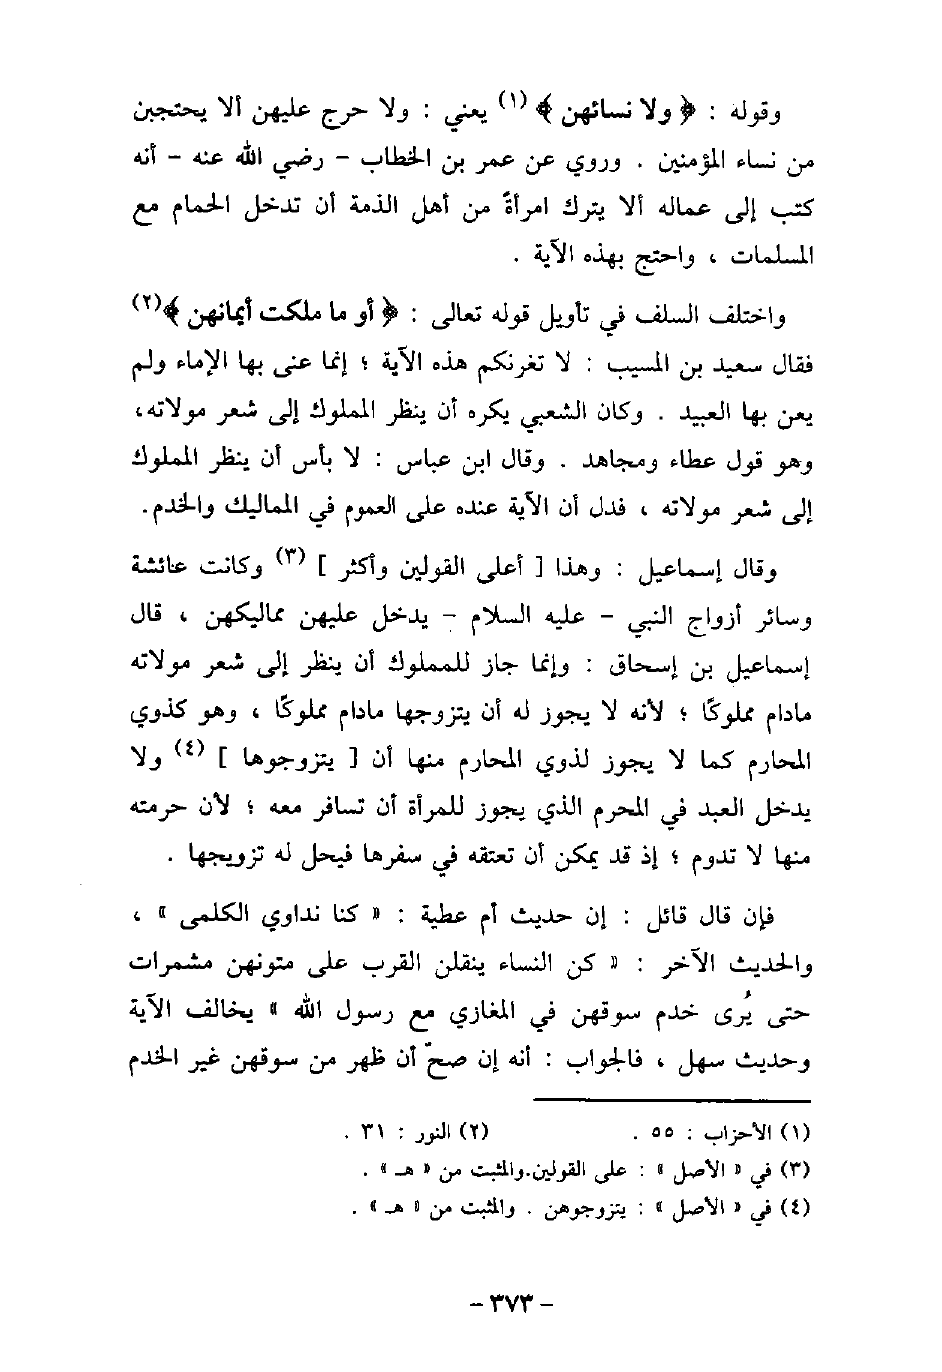 وقوله : ﴿ ولا نسائهن ﴾ (١) يعني : ولا حرج عليهن ألا يحتجبن
من نساء المؤمنين . وروي عن عمر بن الخطاب – رضي الله عنه – أنه
كتب إلى عماله ألا يترك امرأةً من أهل الذمة أن تدخل الحمام مع
المسلمات ، واحتج بهذه الآية .
واختلف السلف في تأويل قوله تعالى : ﴿ أو ما ملكت أيمانهن ﴾(٢)
فقال سعيد بن المسيب : لا تغرنكم هذه الآية ؛ إنما عنى بها الإماء ولم
يعن بها العبيد . وكان الشعبي يكره أن ينظر المملوك إلى شعر مولاته،
وهو قول عطاء ومجاهد . وقال ابن عباس : لا بأس أن ينظر المملوك
إلى شعر مولاته ، فدل أن الآية عنده على العموم في المماليك والخدم.
وقال إسماعيل : وهذا [ أعلى القولين وأكثر ] (٣) وكانت عائشة
وسائر أزواج النبي – عليه السلام – يدخل عليهن مماليكهن ، قال
إسماعيل بن إسحاق : وإنما جاز للمملوك أن ينظر إلى شعر مولاته
مادام مملوكًا ؛ لأنه لا يجوز له أن يتزوجها مادام مملوكًا ، وهو كذوي
المحارم كما لا يجوز لذوي المحارم منها أن [ يتزوجوها ] (٤) ولا
يدخل العبد في المحرم الذي يجوز للمرأة أن تسافر معه ؛ لأن حرمته
منها لا تدوم ؛ إذ قد يمكن أن تعتقه في سفرها فيحل له تزويجها .
فإن قال قائل : إن حديث أم عطية : « كنا نداوي الكلمى » ،
والحديث الآخر : « كن النساء ينقلن القرب على متونهن مشمرات
حتى يُرى خدم سوقهن في المغازي مع رسول الله » يخالف الآية
وحديث سهل ، فالجواب : أنه إن صحّ أن ظهر من سوقهن غير الخدم
(١) الأحزاب : ٥٥ . (٢) النور : ٣١ .
(٣) في « الأصل » : على القولين.والمثبت من « هـ » .
(٤) في « الأصل » : يتزوجوهن . والمثبت من « هـ » .
– ٣٧٣ –